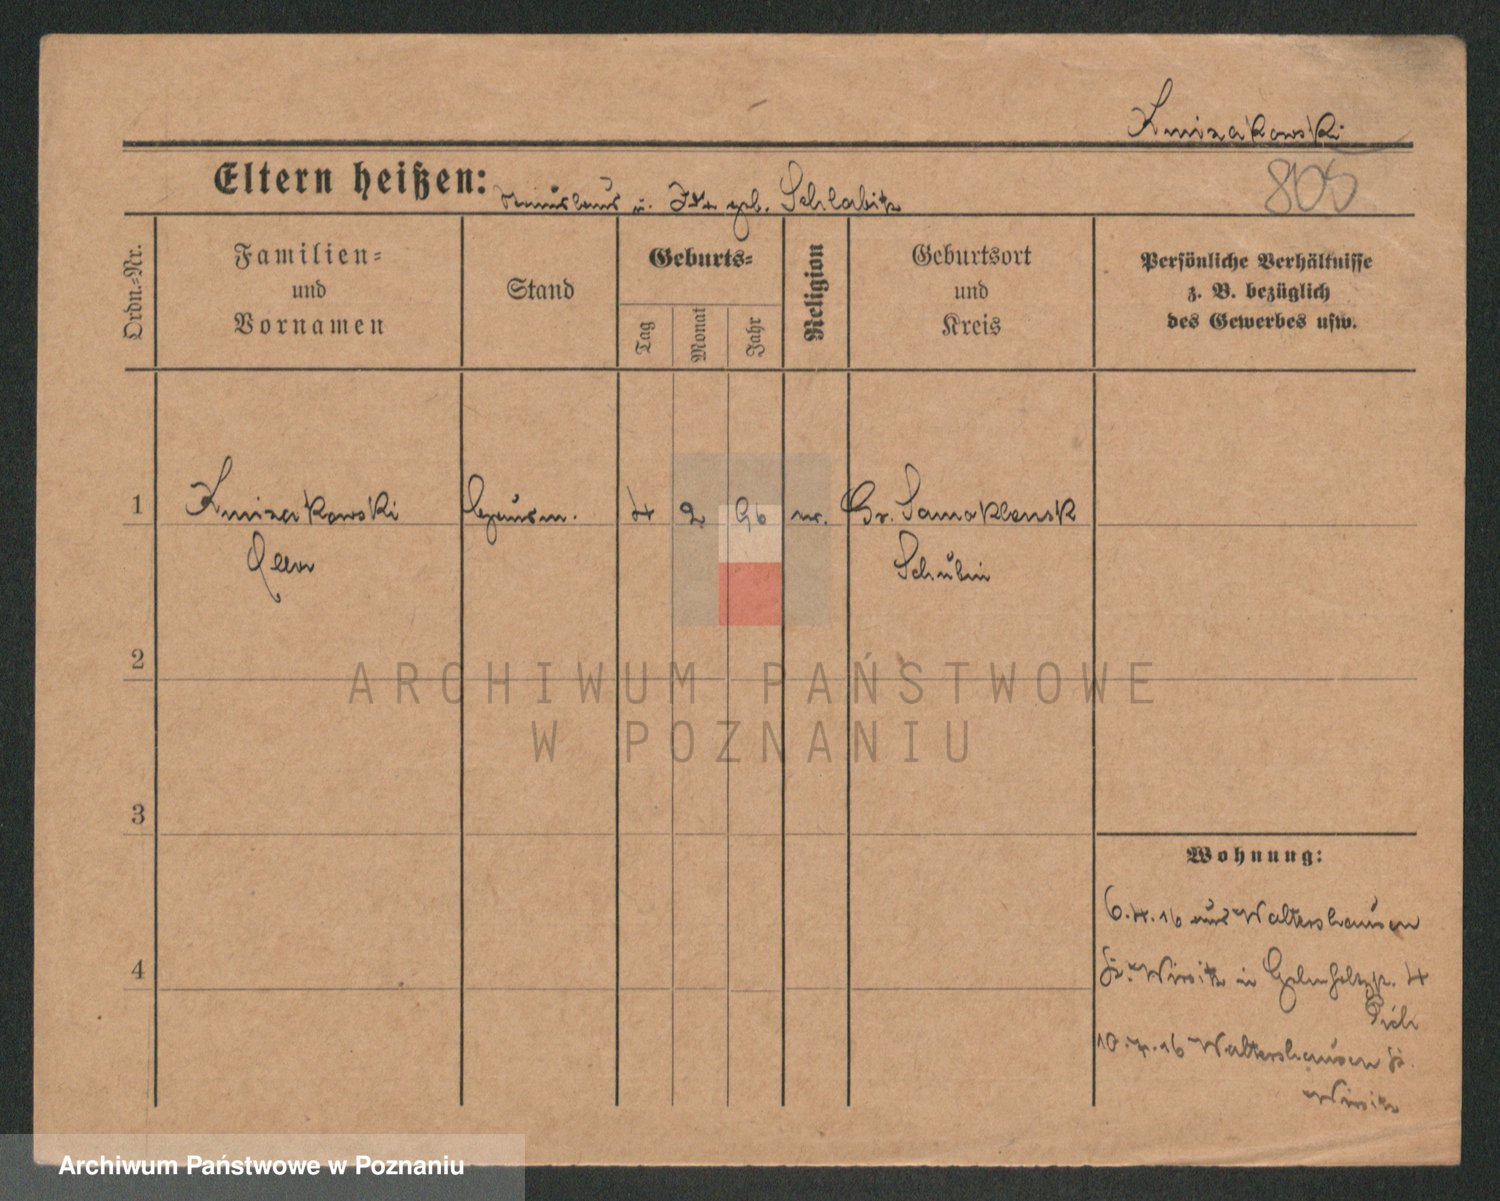 Kmiczakowski
805
Eltern heißen: u. Ida geb. Schlabitz
Ordn.-Nr.
Familien-
und
Vornamen
Stand
Geburts-
Tag
Monat
Jahr
Religion
Geburtsort
und
Kreis
Persönliche Verhältnisse
z. B. bezüglich
des Gewerbes usw.
1 4 2 96 Gr. Samoklensk
Schubin
2
3
4
Wohnung:
6.4.16 aus Waltershausen
Kr. Wirsitz in 4
10.7.16 Waltershausen Kr.
Wirsitz
ARCHIWUM PAŃSTWOWE
W POZNANIU
Archiwum Państwowe w Poznaniu